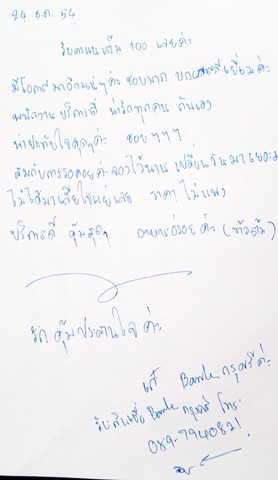 24 ธ.ค. 54
รับคะแนนเต็ม 100 เลยค่ะ
มีโอกาสมาอีกแน่ๆค่ะ ชอบมาก บรรยากาศเยี่ยมค่ะ
พนักงานบริการดี น่ารักทุกคน กันเอง
น่าประทับใจสุดๆค่ะ ชอบๆๆๆ
สมกับการรอคอยค่ะ จองไว้นาน เปลี่ยนวันมาเยอะ
ไม่ได้มาเสียใจแย่เลย ราคาไม่แพง
บริการดี คุ้มสุดๆ อาหารอร่อยค่ะ (ข้าวต้ม)
รัก คุ้มประตานใจ ค่ะ
เก๋ Bank กรุงศรีค่ะ
รับสินเชื่อ Bank กรุงศรี โทร.
089-7940821